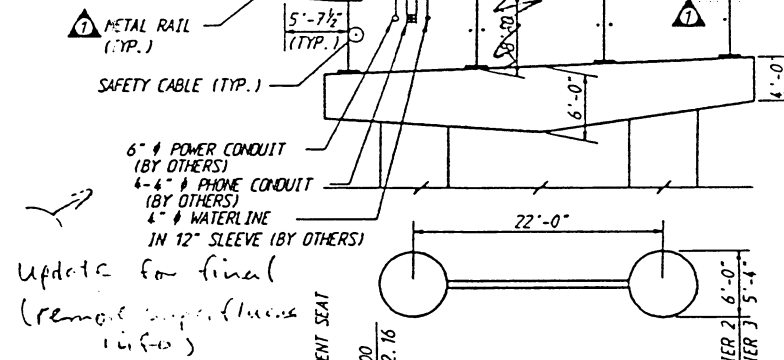 1 METAL RAIL
(TYP.)
5'-7½"
(TYP.)
SAFETY CABLE (TYP.)
1
6'-0"
4'-0
6" ϕ POWER CONDUIT
(BY OTHERS)
4-4" ϕ PHONE CONDUIT
(BY OTHERS)
4" ϕ WATERLINE
IN 12" SLEEVE (BY OTHERS)
22'-0"
update for final
(
info)
ENT SEAT
00
2. 16
6'-0"
5'-4"
IER 2
IER 3